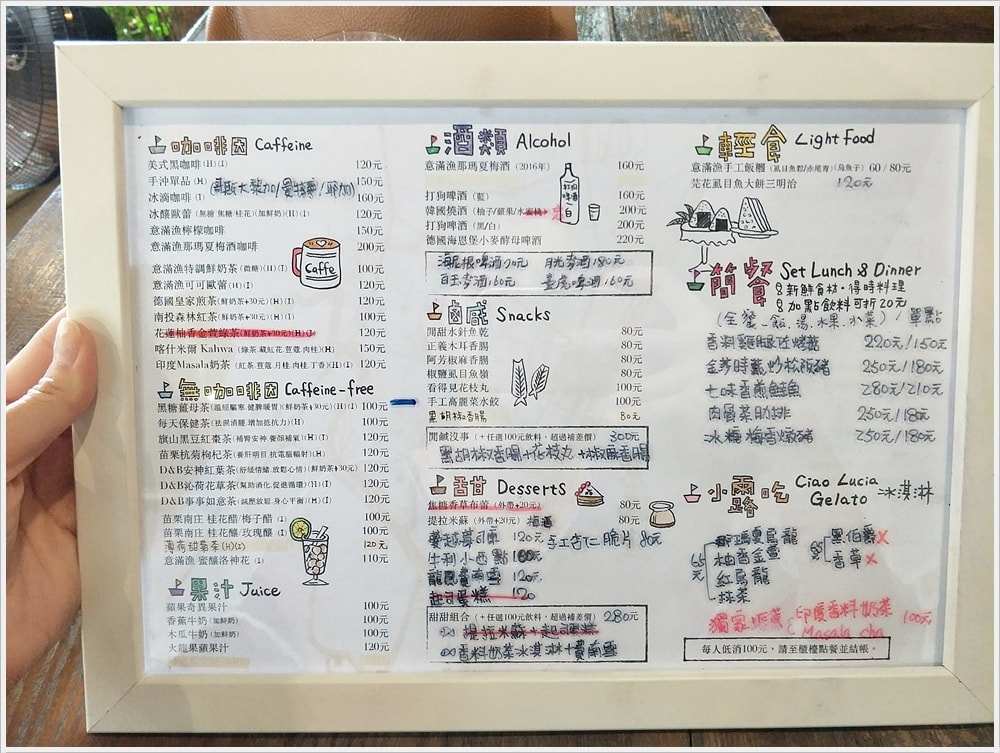 咖啡因 Caffeine
美式黑咖啡 (H) (I) 120元
手沖單品 (H) 150元
冰滴咖啡 (I) 160元
冰釀歐蕾 (無糖 焦糖/桂花)(加鮮奶)(H)(I) 120元
意滿漁檸檬咖啡 150元
意滿漁那瑪夏梅酒咖啡 200元
意滿漁特調鮮奶茶 (微糖)(H)(I) 120元
意滿漁可可歐蕾 (H) 120元
德國皇家煎茶 (鮮奶茶+30元)(H)(I) 120元
南投森林紅茶 (鮮奶茶+30元)(H) 100元
花蓮柚香金萱綠茶 (鮮奶茶+30元)(H)(I) 120元
喀什米爾 Kahwa (綠茶.藏紅花.荳蔻.肉桂)(H) 150元
印度Masala奶茶 (紅茶.荳蔻.月桂.肉桂.丁香)(H)(I) 120元
無咖啡因 Caffeine-free
黑糖薑母茶 (溫經驅寒.健脾暖胃)(鮮奶茶+30元)(H)(I) 100元
每天保健茶 (祛濕消腫.增加抵抗力)(H) 100元
旗山黑豆紅棗茶 (補腎安神.養顏補氣)(H)(I) 120元
苗栗杭菊枸杞茶 (養肝明目.抗電腦輻射)(H) 120元
D&B安神紅葉茶 (舒緩情緒.放鬆心情)(鮮奶茶+30元) 120元
D&B沁荷花草茶 (幫助消化.促進循環)(H)(I) 120元
D&B事事如意茶 (減壓放鬆.身心平衡)(H)(I) 120元
苗栗南庄 桂花醋/梅子醋 (I) 100元
苗栗南庄 桂花釀/玫瑰釀 (I) 100元
薄荷甜菊茶(H)(I) 120元
意滿漁 蜜釀洛神花 (I) 110元
果汁 Juice
蘋果奇異果汁 100元
香蕉牛奶 (加鮮奶) 100元
木瓜牛奶 (加鮮奶) 100元
火龍果蘋果汁 120元
酒類 Alcohol
意滿漁那瑪夏梅酒 (2016年) 160元
打狗啤酒 (藍) 160元
韓國燒酒 (柚子/蘋果/水蜜桃) 200元
打狗啤酒 (黑/白) 200元
德國海恩堡小麥酵母啤酒 220元
打狗啤酒 白
月光麥酒180元
白玉麥酒160元 臺虎啤酒160元
鹵咸 Snacks
閒甜水針魚乾 80元
正義木耳香腸 80元
阿芳椒麻香腸 80元
椒鹽虱目魚嶺 80元
看得見花枝丸 100元
手工高麗菜水餃 100元
黑胡椒香腸 80元
閒鹹沒事 (+任選100元飲料，超過補差價) 300元
黑胡椒香腸+花枝丸+椒麻香腸
甜甜 Desserts
焦糖香草布蕾 (外帶+20元) 80元
提拉米蘇 (外帶+20元) 80元
蔓越莓司康 120元 手工杏仁脆片 80元
牛利小西點 100元
120元
起司蛋糕 120
甜甜組合 (+任選100元飲料，超過補差價) 280元
提拉米蘇+起司蛋糕
香料奶茶冰淇淋+費南雪
Caffe
輕食 Light Food
意滿漁手工飯糰 (虱目魚鬆/赤尾青)(烏魚子) 60 / 80元
芫花虱目魚大餅三明治 120元
簡餐 Set Lunch & Dinner
&新鮮食材．得時料理
&加點飲料可折20元
(全餐：飯、湯、水果、小菜) / 單點
香料雞腿 220元/150元
250元/180元
七味香煎鮭魚 280元/210元
肉骨茶肋排 250元/180元
冰糖梅香燉豬 250元/180元
小露吃 Ciao Lucia Gelato 冰淇淋
65元
那瑪夏烏龍
柚香金萱
紅烏龍
抹茶
85元
黑伯爵X
香草X
獨家 印度香料奶茶 Masala cha 100元
每人低消100元，請至櫃檯點餐並結帳。